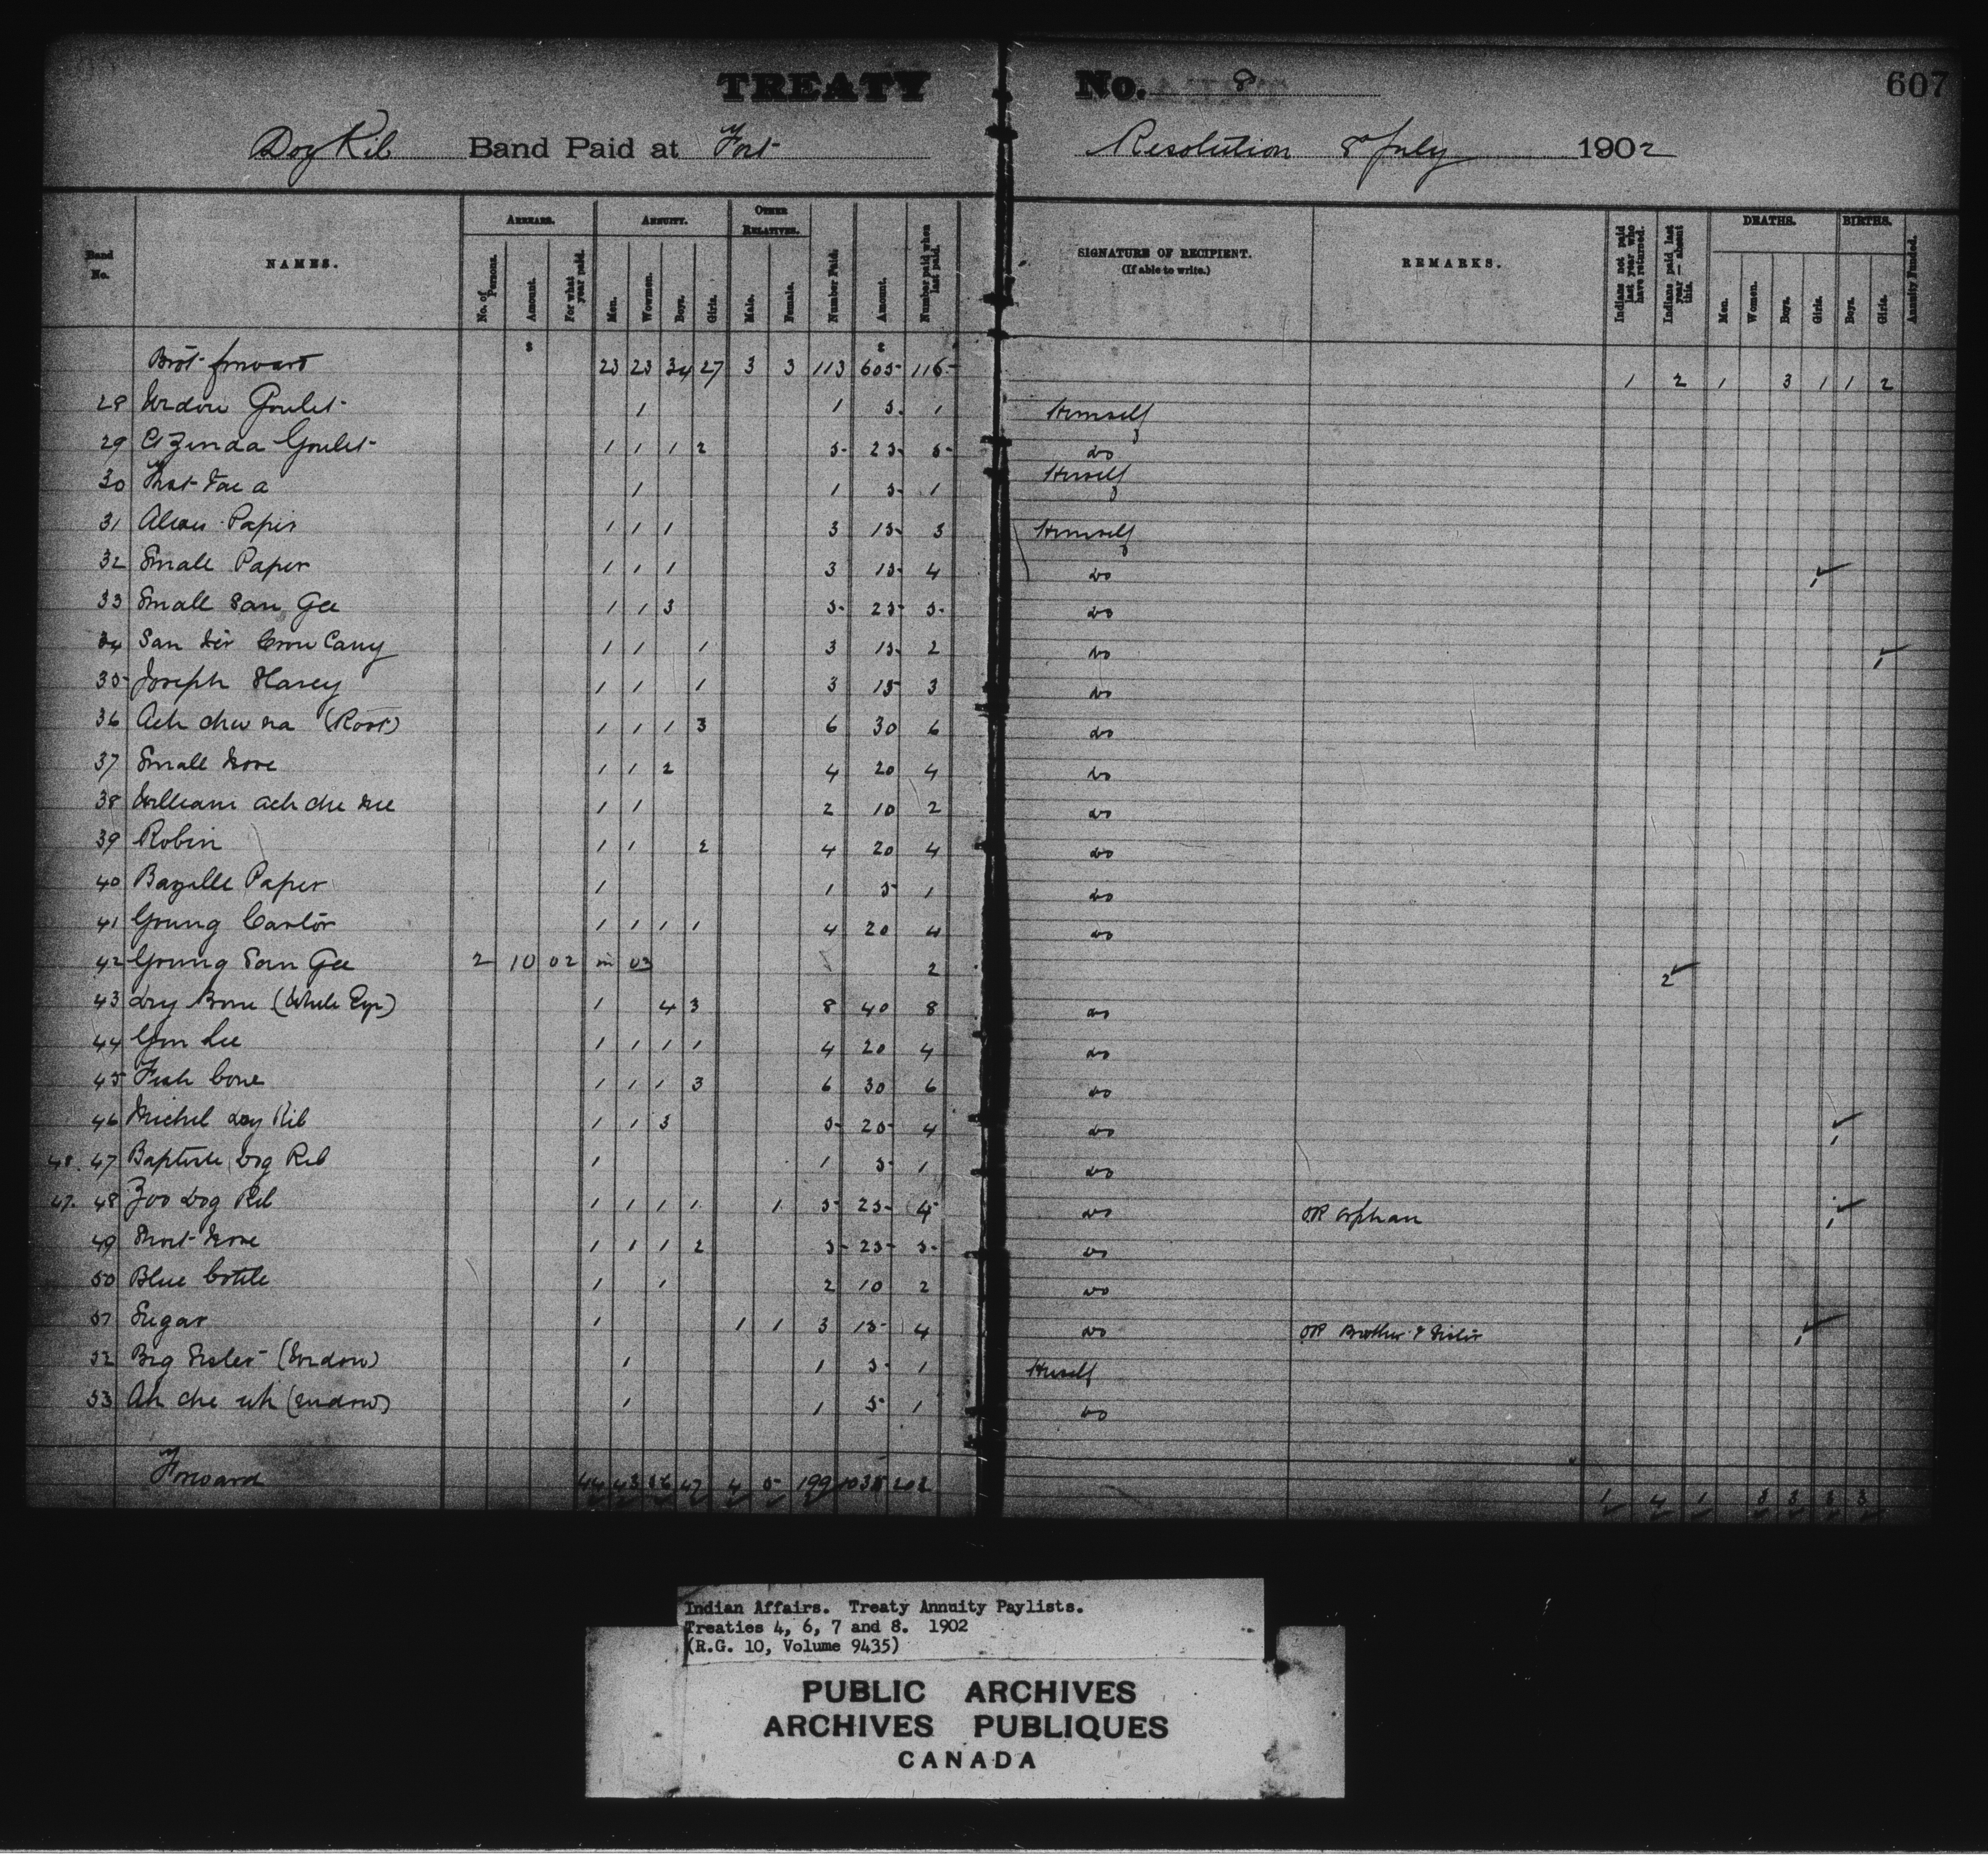 TREATY No. 8
607
Dog Rib Band Paid at Fort Resolution 8 July 1902
Band No. NAMES. ARREARS. ANNUITY. OTHER RELATIVES. Number Paid. Amount. Number paid when last paid. SIGNATURE OF RECIPIENT. (If able to write.) REMARKS. Indians not paid last year who have returned. Indians paid last year — absent this. DEATHS. BIRTHS. Annuity Funded.
No. of Persons. Amount. For what year paid. Men. Women. Boys. Girls. Male. Female. Men. Women. Boys. Girls. Boys. Girls.
Brot forward 23 23 34 27 3 3 113 605 116 1 2 1 3 1 1 2
28 Widow Goulet 1 1 5 1 Himself
29 Goulet 1 1 1 2 5 25 5 do
30 1 1 5 1 Herself
31 1 1 1 3 15 3 Himself
32 Small Paper 1 1 1 3 15 4 do 1
33 Small San Gee 1 1 3 5 25 5 do
34 San 1 1 1 3 15 2 do 1
35 Joseph Harey 1 1 1 3 15 3 do
36 Ach chu na (Root) 1 1 1 3 6 30 6 do
37 Small Nose 1 1 2 4 20 4 do
38 William ach che 1 1 2 10 2 do
39 Robin 1 1 2 4 20 4 do
40 Bazille Paper 1 1 5 1 do
41 Young Castor 1 1 1 1 4 20 4 do
42 Young San Gee 2 10 02 in 03 2 2
43 Dry Bone (White Eye) 1 4 3 8 40 8 do
44 Gon Lee 1 1 1 1 4 20 4 do
45 Fish bone 1 1 1 3 6 30 6 do
46 Michel Dog Rib 1 1 3 5 25 4 do 1
48. 47 Baptiste Dog Rib 1 1 5 1 do
47. 48 Zoo Dog Rib 1 1 1 1 1 5 25 4 do OR orphan 1
49 Short Nose 1 1 1 2 5 25 5 do
50 Blue bottle 1 1 2 10 2 do
51 Sugar 1 1 1 3 15 4 do OR Brother & Sister 1
52 Big Sister (Widow) 1 1 5 1 Herself
53 Ah che uh (widow) 1 1 5 1 do
Forward 44 43 56 47 4 5 199 1035 202 1 4 1 3 3 3 3
Indian Affairs. Treaty Annuity Paylists.
Treaties 4, 6, 7 and 8. 1902
(R.G. 10, Volume 9435)
PUBLIC ARCHIVES
ARCHIVES PUBLIQUES
CANADA